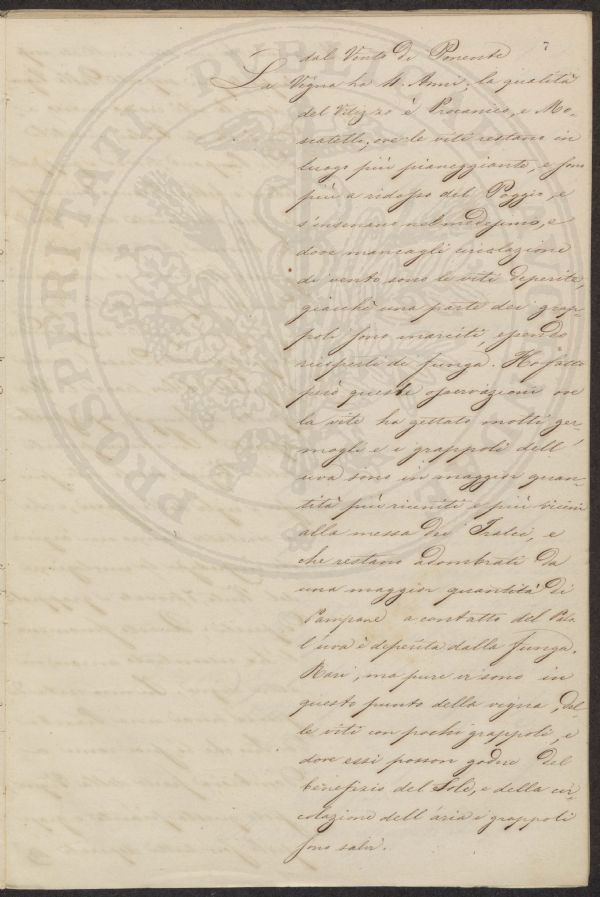 7
dale Vento di Ponente
La Vigna ha 11. Anni; la qualità
del Vitizzo è Procanico, e Mo-
scatello, ove le viti restano in
luogo più pianeggiante, e sono
più a ridosso del Poggio, e
s'insenano nel medesimo, e
dove mancagli circolazione
di vento sono le viti deperite,
giacchè una parte dei grap-
poli sono marciti, essendo
ricoperti di funga. Ho fatto
però queste osservazioni ove
la vite ha gettato molti ger-
mogli e i grappoli dell'
uva sono in maggior quan-
tità più riuniti e più vicini
alla messa dei Tralci, e
che restano adombrati da
una maggior quantità di
Pampane a contatto del
l'uva è deperita dalla funga.
Rari, ma pure vi sono in
questo punto della vigna, del-
le viti con pochi grappoli, e
dove essi posson godere del
benefizio del Sole, e della cir-
colazione dell'aria i grappoli
sono salvi.
PROSPERITATI PUBLICAE